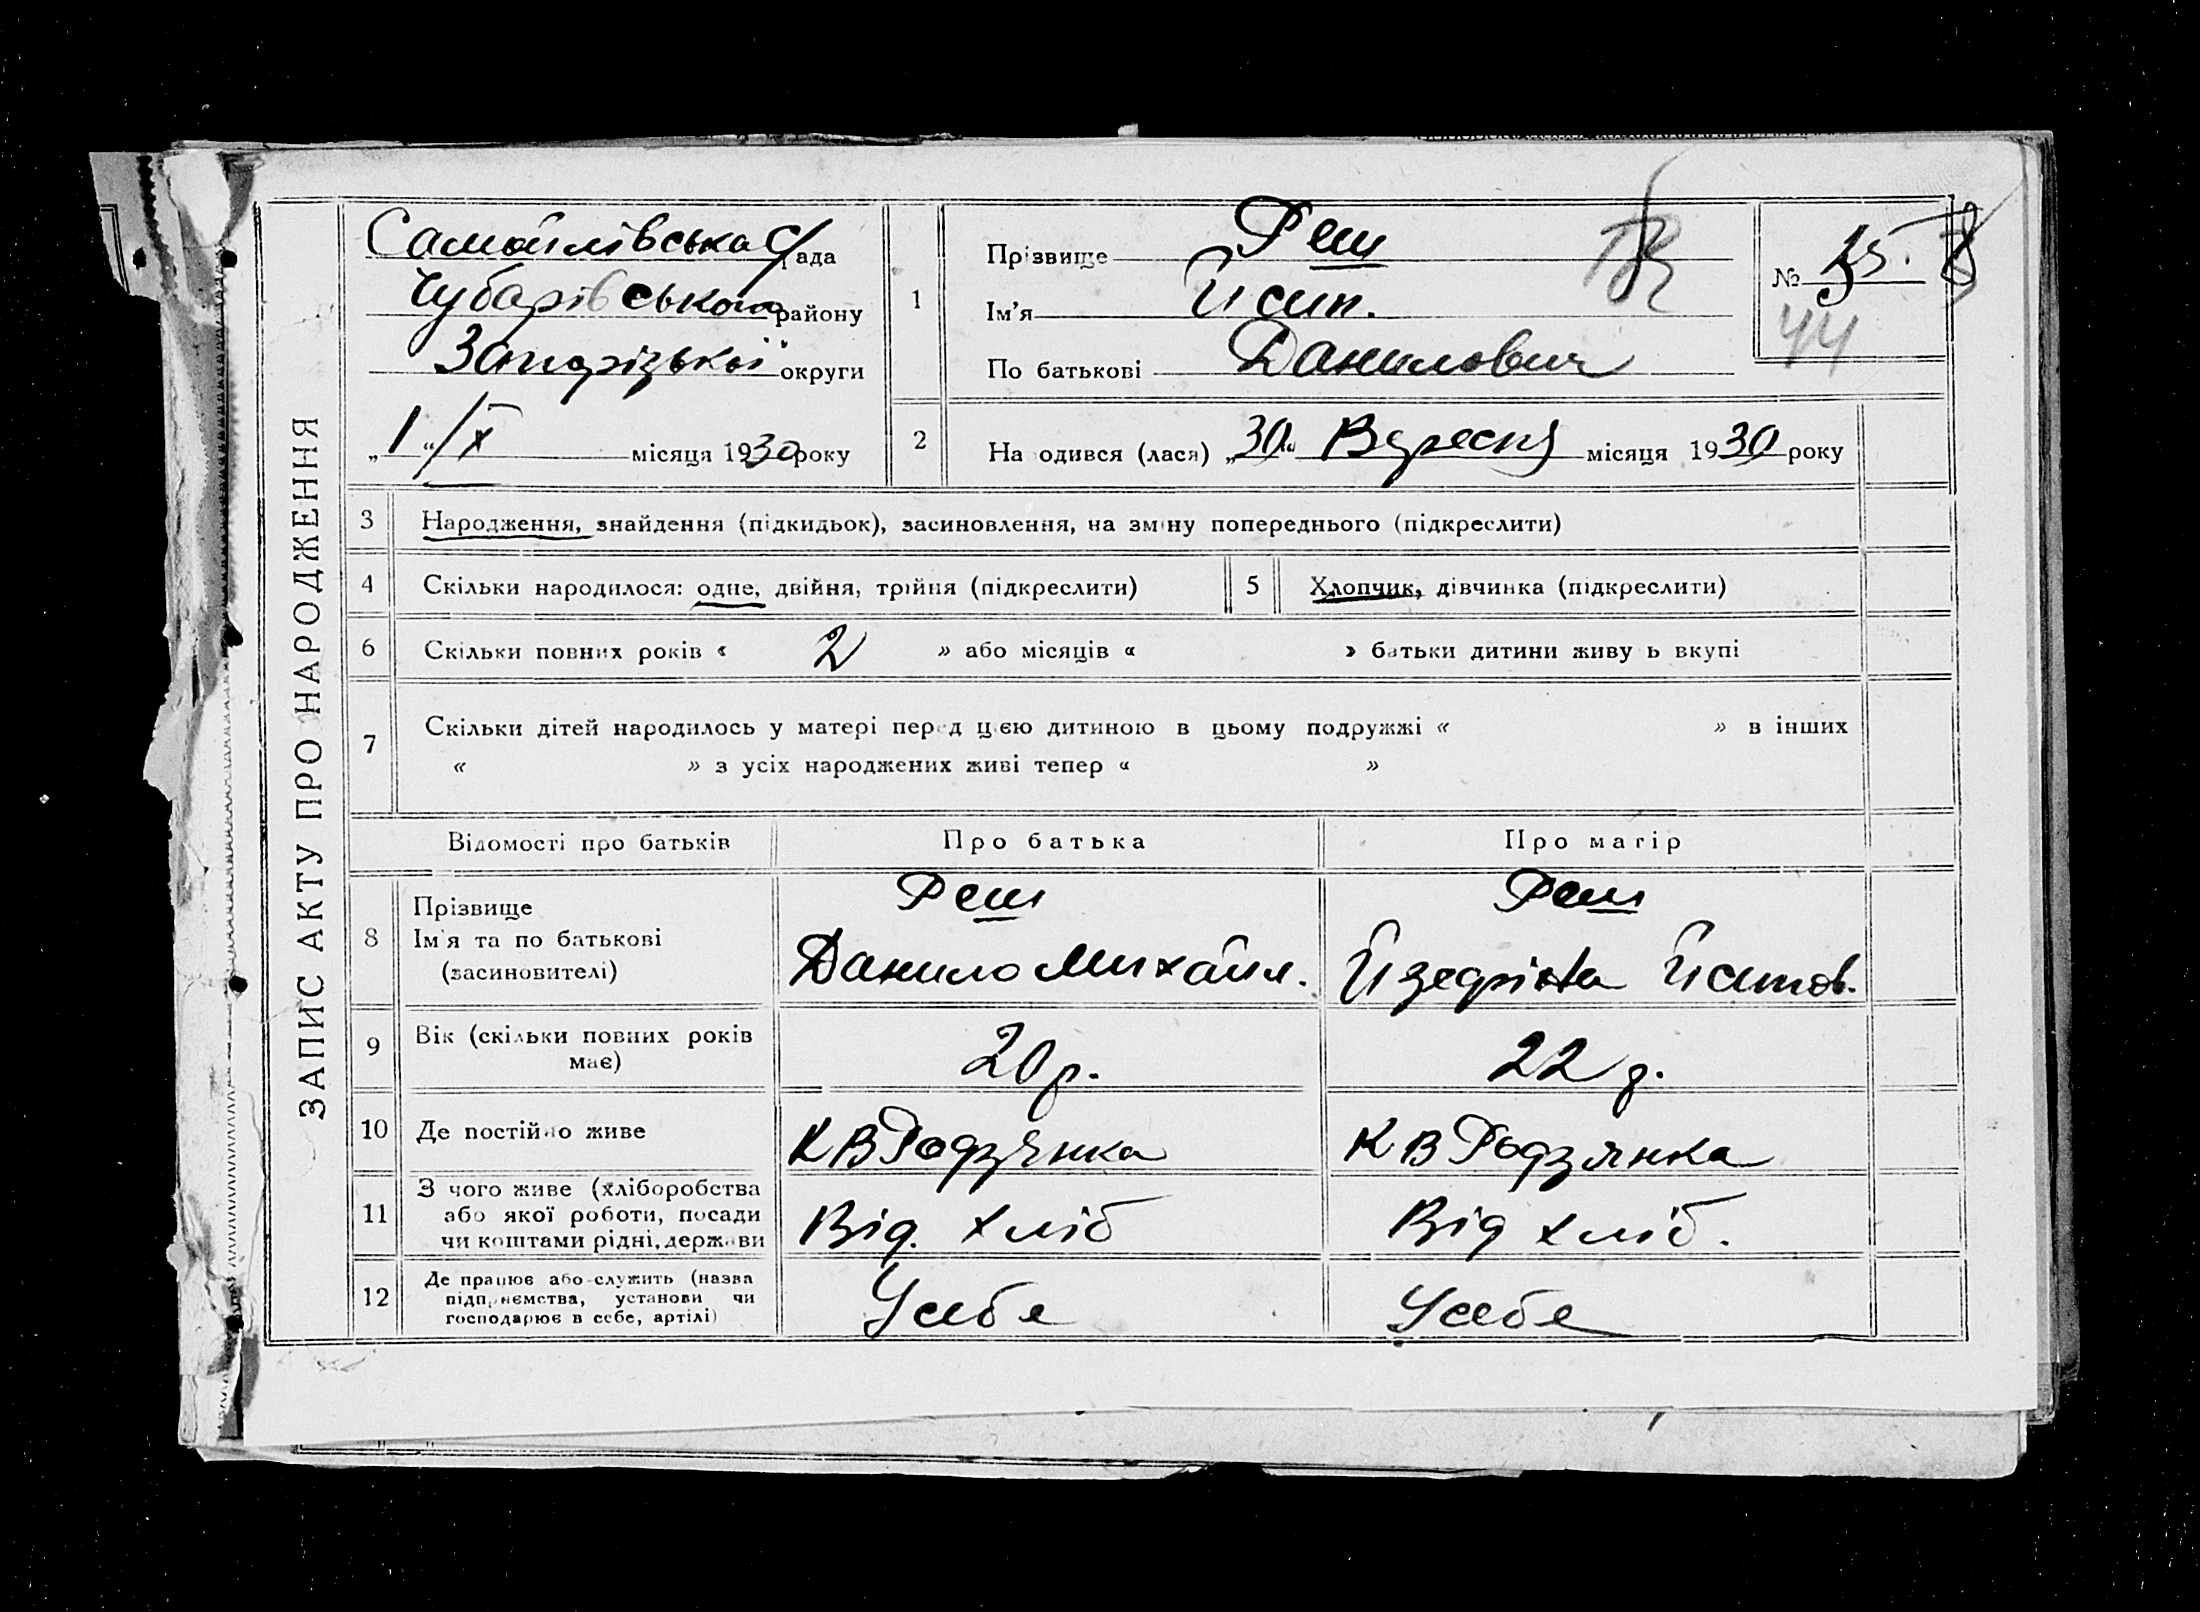 ЗАПИС АКТУ ПРО НАРОДЖЕННЯ
Самойлівська с/рада
Чубарівського району
Запорізької округи
„1“/X місяця 1930 року
1
Прізвище Реш
Ім'я Йсип.
По батькові Данилович
№ 45.
44
2 На одився (лася) „30“ Вересня місяця 1930 року
3 Народження, знайдення (підкидьок), засиновлення, на зміну попереднього (підкреслити)
4 Скільки народилося: одне, двійня, трійня (підкреслити)
5 Хлопчик, дівчинка (підкреслити)
6 Скільки повних років « 2 » або місяців « » батьки дитини живу ь вкупі
7 Скільки дітей народилось у матері перед цією дитиною в цьому подружжі « » в інших
« » з усіх народжених живі тепер « »
Відомості про батьків Про батька Про матір
8 Прізвище
Ім'я та по батькові
(засиновителі)
Реш
Данило Михайл.
Реш
Йсипов.
9 Вік (скільки повних років
має)
20 р.
22 р.
10 Де постійно живе
К В Родзянка
К В Родзянка
11 З чого живе (хліборобства
або якої роботи, посади
чи коштами рідні, держави
Від. хліб
Від хліб.
12 Де працює або служить (назва
підприємства, установи чи
господарює в себе, артілі)
У себе
У себе